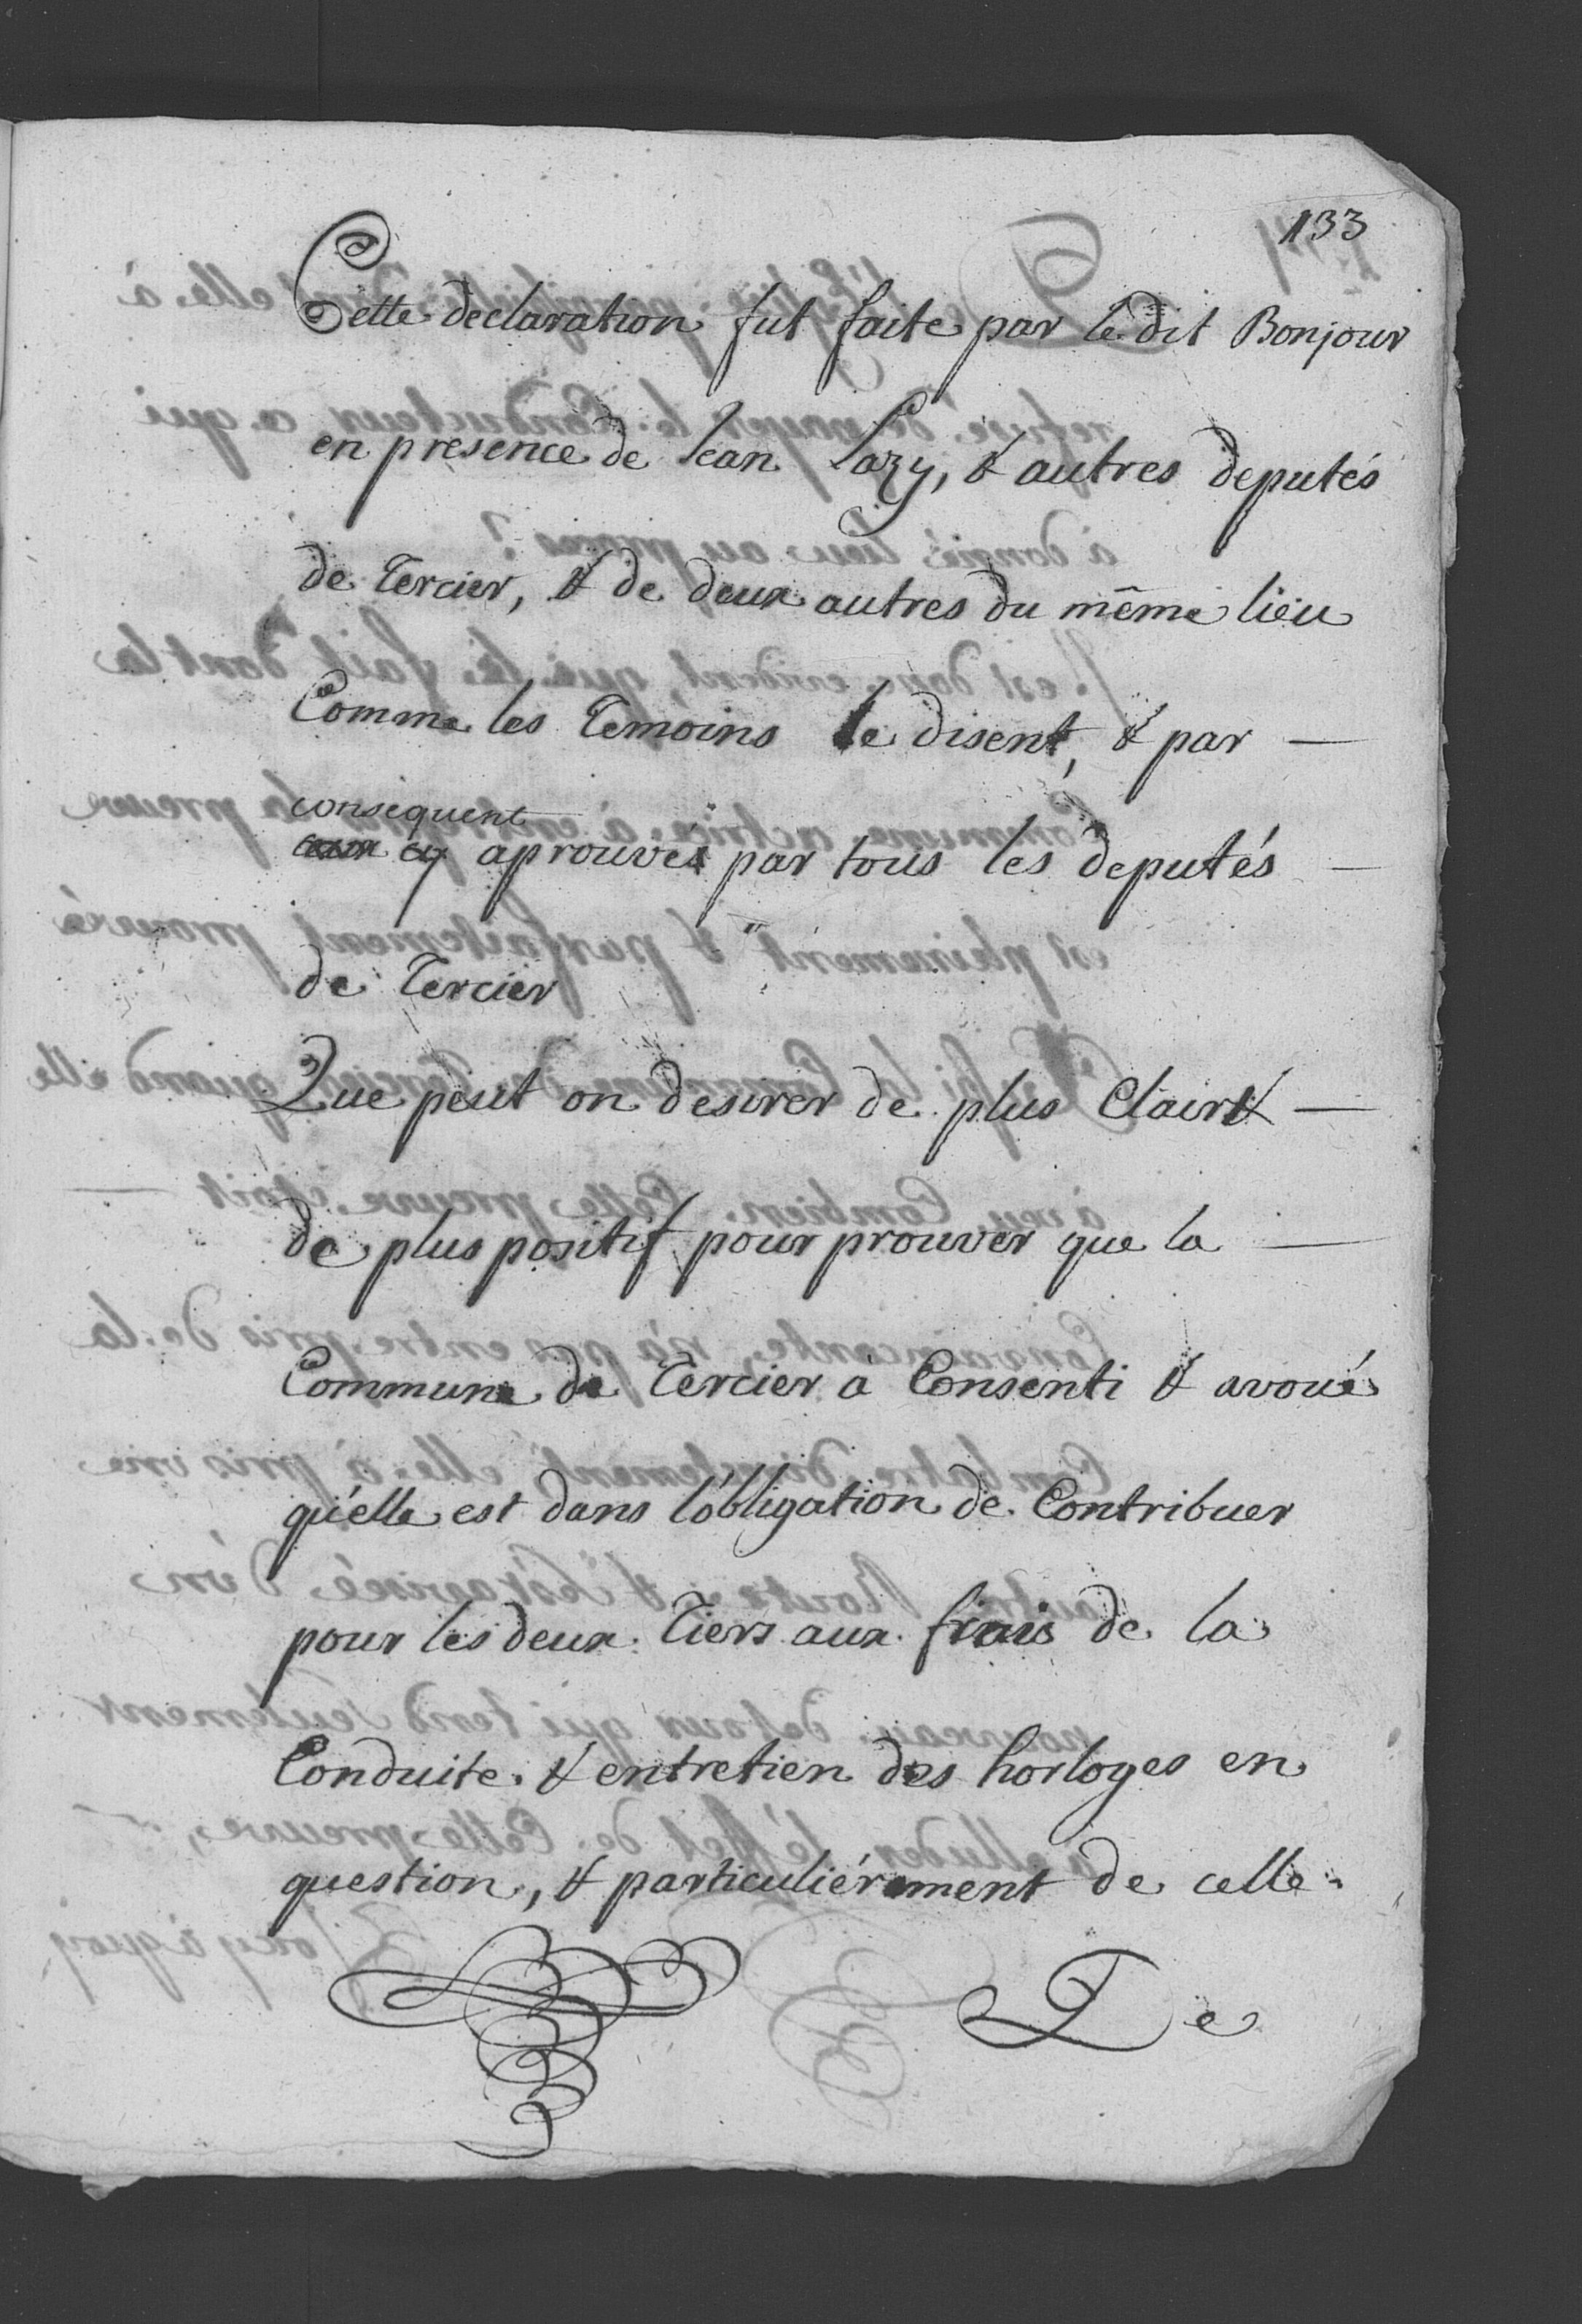 133
Cette declaration fut faite par le dit Bonjour
en presence de Jean Lozy, & autres deputés
de Tercier, & de deux autres du même lieu
Comme les Temoins le disent, & par —
consequent
aprouvés par tous les deputés —
de Tercier
Que peut on desirer de plus Clair & —
de plus positif pour prouver que la —
Commune de Tercier à Consenti & avoué
qu'elle est dans l'obligation de Contribuer
pour les deux Tiers aux frais de la
Conduite & entretien des horloges en
question, & particuliérement de celle
De